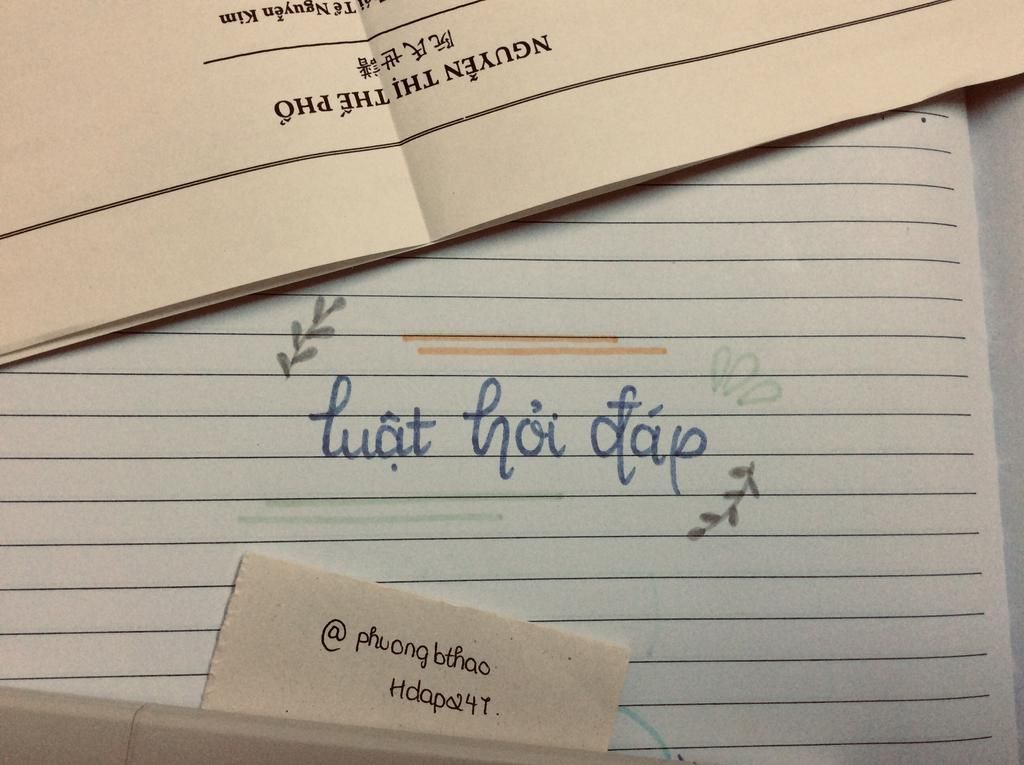 NGUYỄN THỊ THẾ PHỔ
阮氏世譜
Tế Nguyễn Kim
luật hỏi đáp
@ phuongbthao
Hdap247.